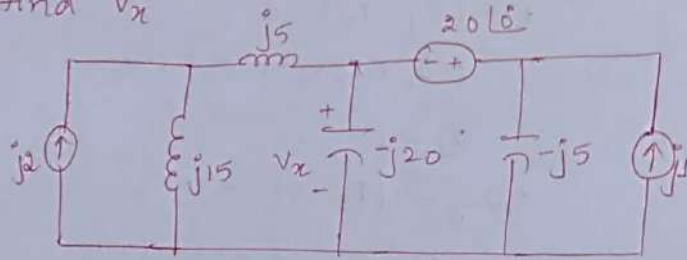 find Vx
j5
20∠0°
- +
j2
j15
+
Vx
-
-j20
-j5
j1